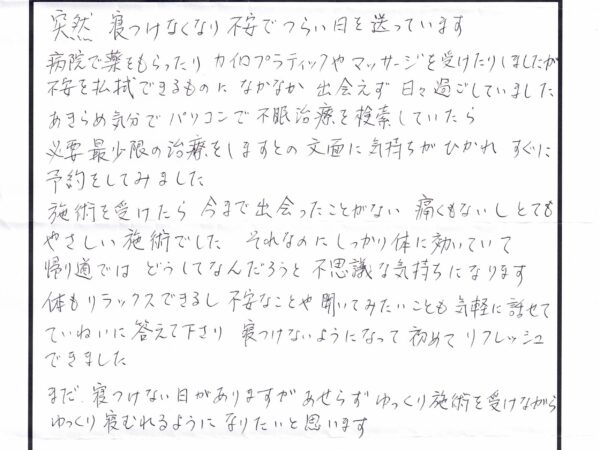 突然 寝つけなくなり 不安でつらい日を送っています
病院で薬をもらったり カイロプラティックや マッサージを受けたりしましたが
不安を払拭できるものに なかなか 出会えず 日々過ごしていました
あきらめ気分で パソコンで 不眠治療を検索していたら
必要最少限の治療をしますとの 文面に気持ちが ひかれ すぐに
予約をしてみました
施術を受けたら 今まで出会ったことがない 痛くもないし とても
やさしい施術でした それなのに しっかり体に効いていて
帰り道では どうしてなんだろうと 不思議な気持ちになります
体もリラックスできるし 不安なことや 聞いてみたいことも 気軽に話せて
ていねいに答えて下さり 寝つけないようになって 初めて リフレッシュ
できました
まだ 寝つけない日がありますが あせらず ゆっくり施術を受けながら
ゆっくり寝むれるように なりたいと思います